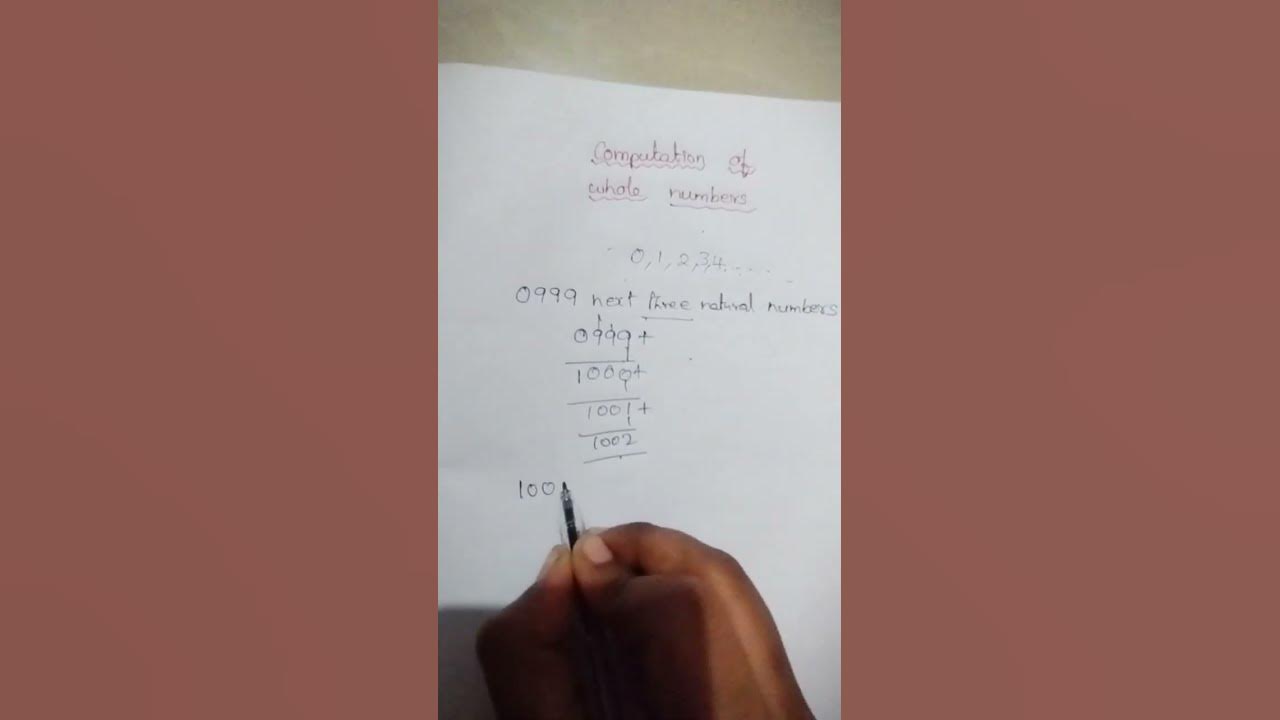 Computation of
whole numbers
0, 1, 2, 3, 4.....
0999 next three natural numbers
0999 +
1
1000 +
1
1001 +
1
1002
100